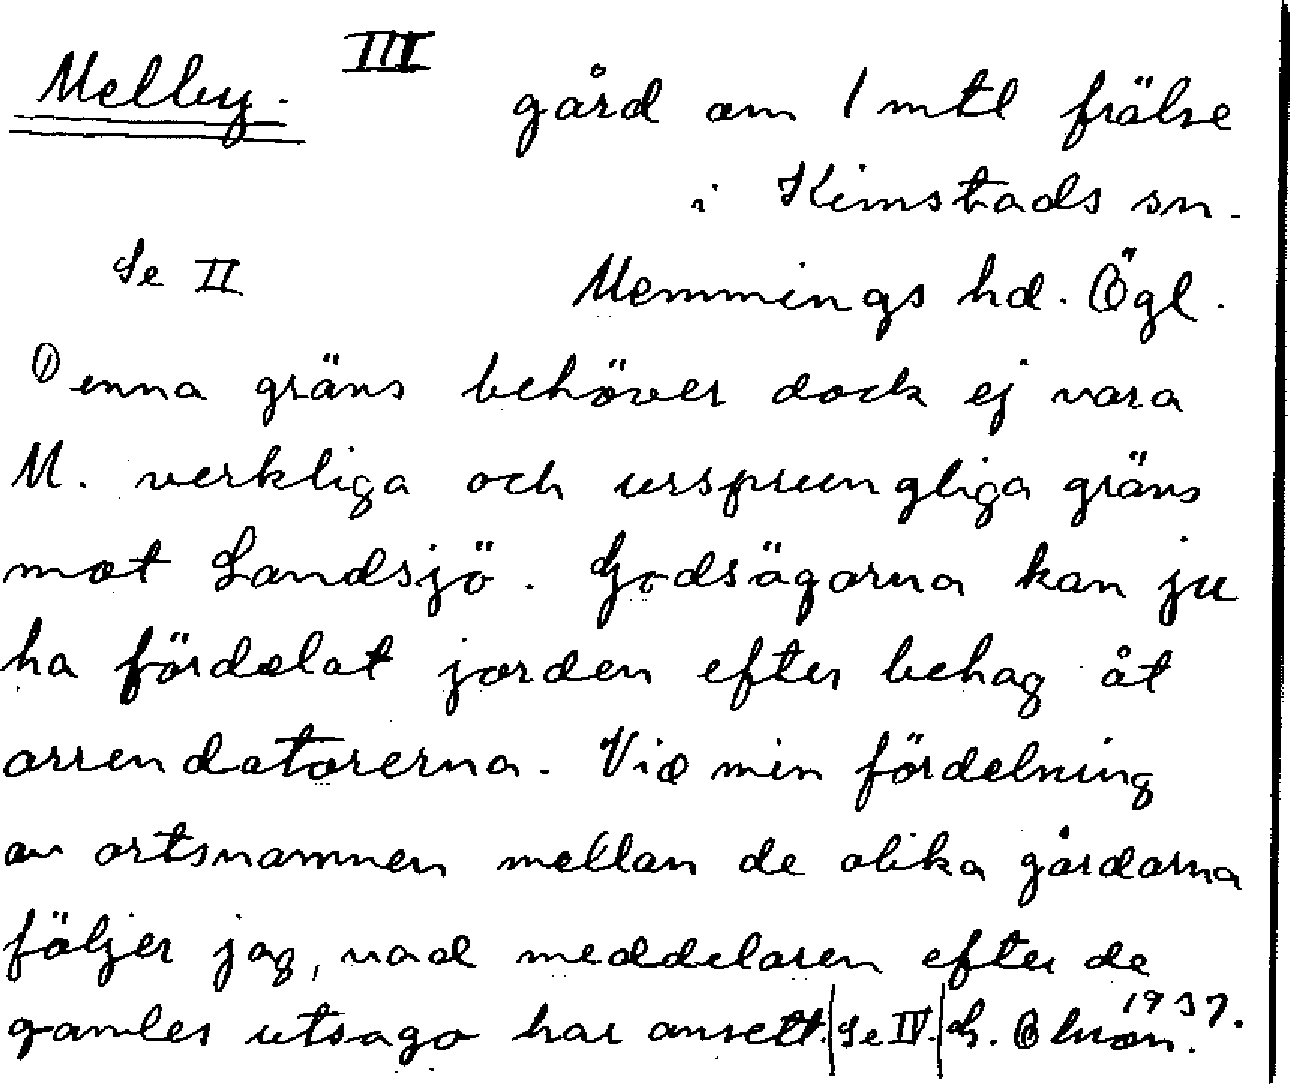 III
Melby. gård om 1 mtl frälse
i Kimstads sn.
Se II Memmings hd. Ögl.
Denna gräns behöver dock ej vara
M. verkliga och ursprungliga gräns
mot Landsjö. Godsägarna kan ju
ha fördelat jorden efter behag åt
arrendatorerna. Vid min fördelning
av ortsnamnen mellan de olika gårdarna
följer jag, vad meddelaren efter de
gamles utsago har ansett. | Se IV. |
1937.